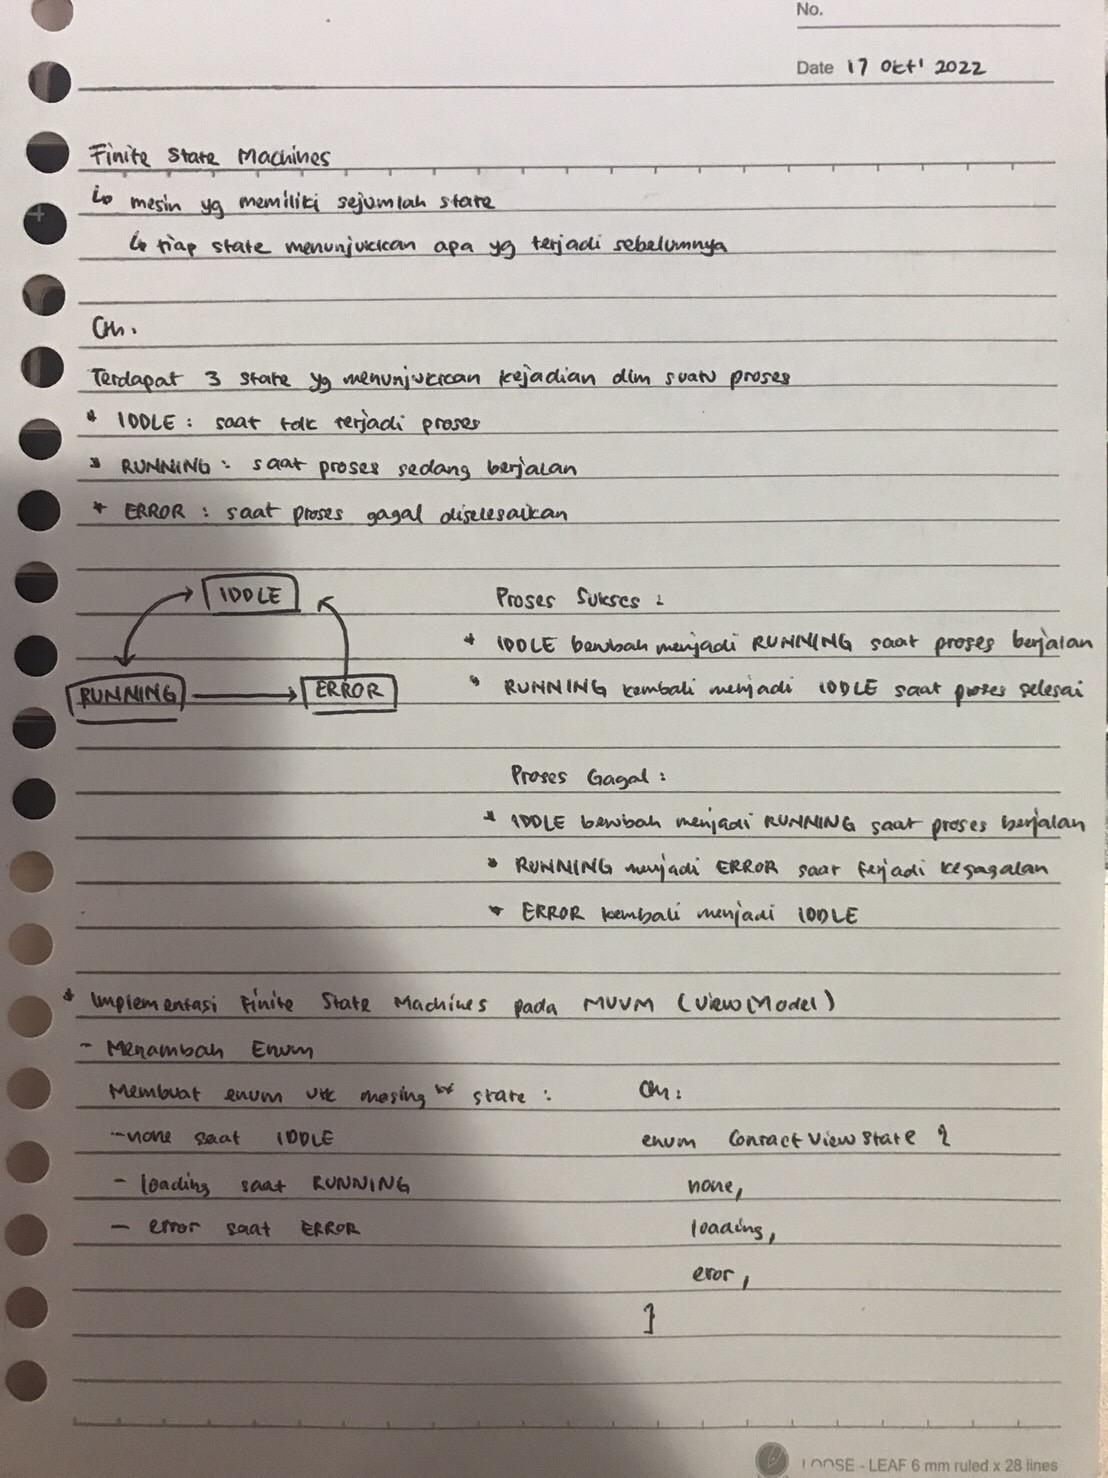 No.
Date 17 Okt' 2022
Finite State Machines
↳ mesin yg memiliki sejumlah state
↳ tiap state menunjukkan apa yg terjadi sebelumnya
Cth.
Terdapat 3 state yg menunjukkan kejadian dlm suatu proses
* IDDLE : saat tdk terjadi proses
* RUNNING : saat proses sedang berjalan
* ERROR : saat proses gagal diselesaikan
IDDLE
RUNNING → ERROR
Proses Sukses :
* IDDLE berubah menjadi RUNNING saat proses berjalan
* RUNNING kembali menjadi IDDLE saat proses selesai
Proses Gagal :
* IDDLE berubah menjadi RUNNING saat proses berjalan
* RUNNING menjadi ERROR saat terjadi kegagalan
* ERROR kembali menjadi IDDLE
* Implementasi Finite State Machines pada MVVM (View Model)
- Menambah Enum
Membuat enum utk masing" state :
- none saat IDDLE
- loading saat RUNNING
- error saat ERROR
Cth :
enum Contact View State {
none,
loading,
eror,
}
LOOSE - LEAF 6 mm ruled x 28 lines